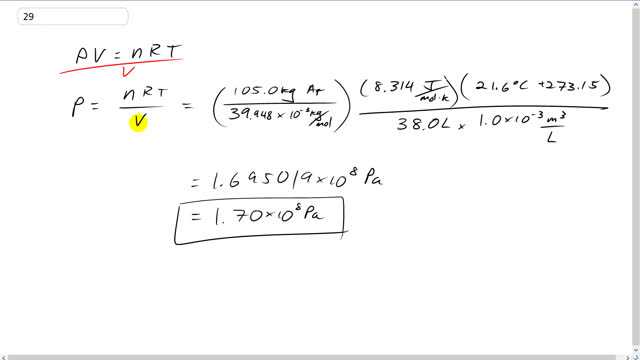 29
PV = nRT
V
P = nRT / V = (105.0 kg Ar / 39.948 × 10⁻³ kg/mol) (8.314 J/mol·K) (21.6°C + 273.15) / 38.0 L × 1.0 × 10⁻³ m³/L
= 1.695019 × 10⁸ Pa
= 1.70 × 10⁸ Pa